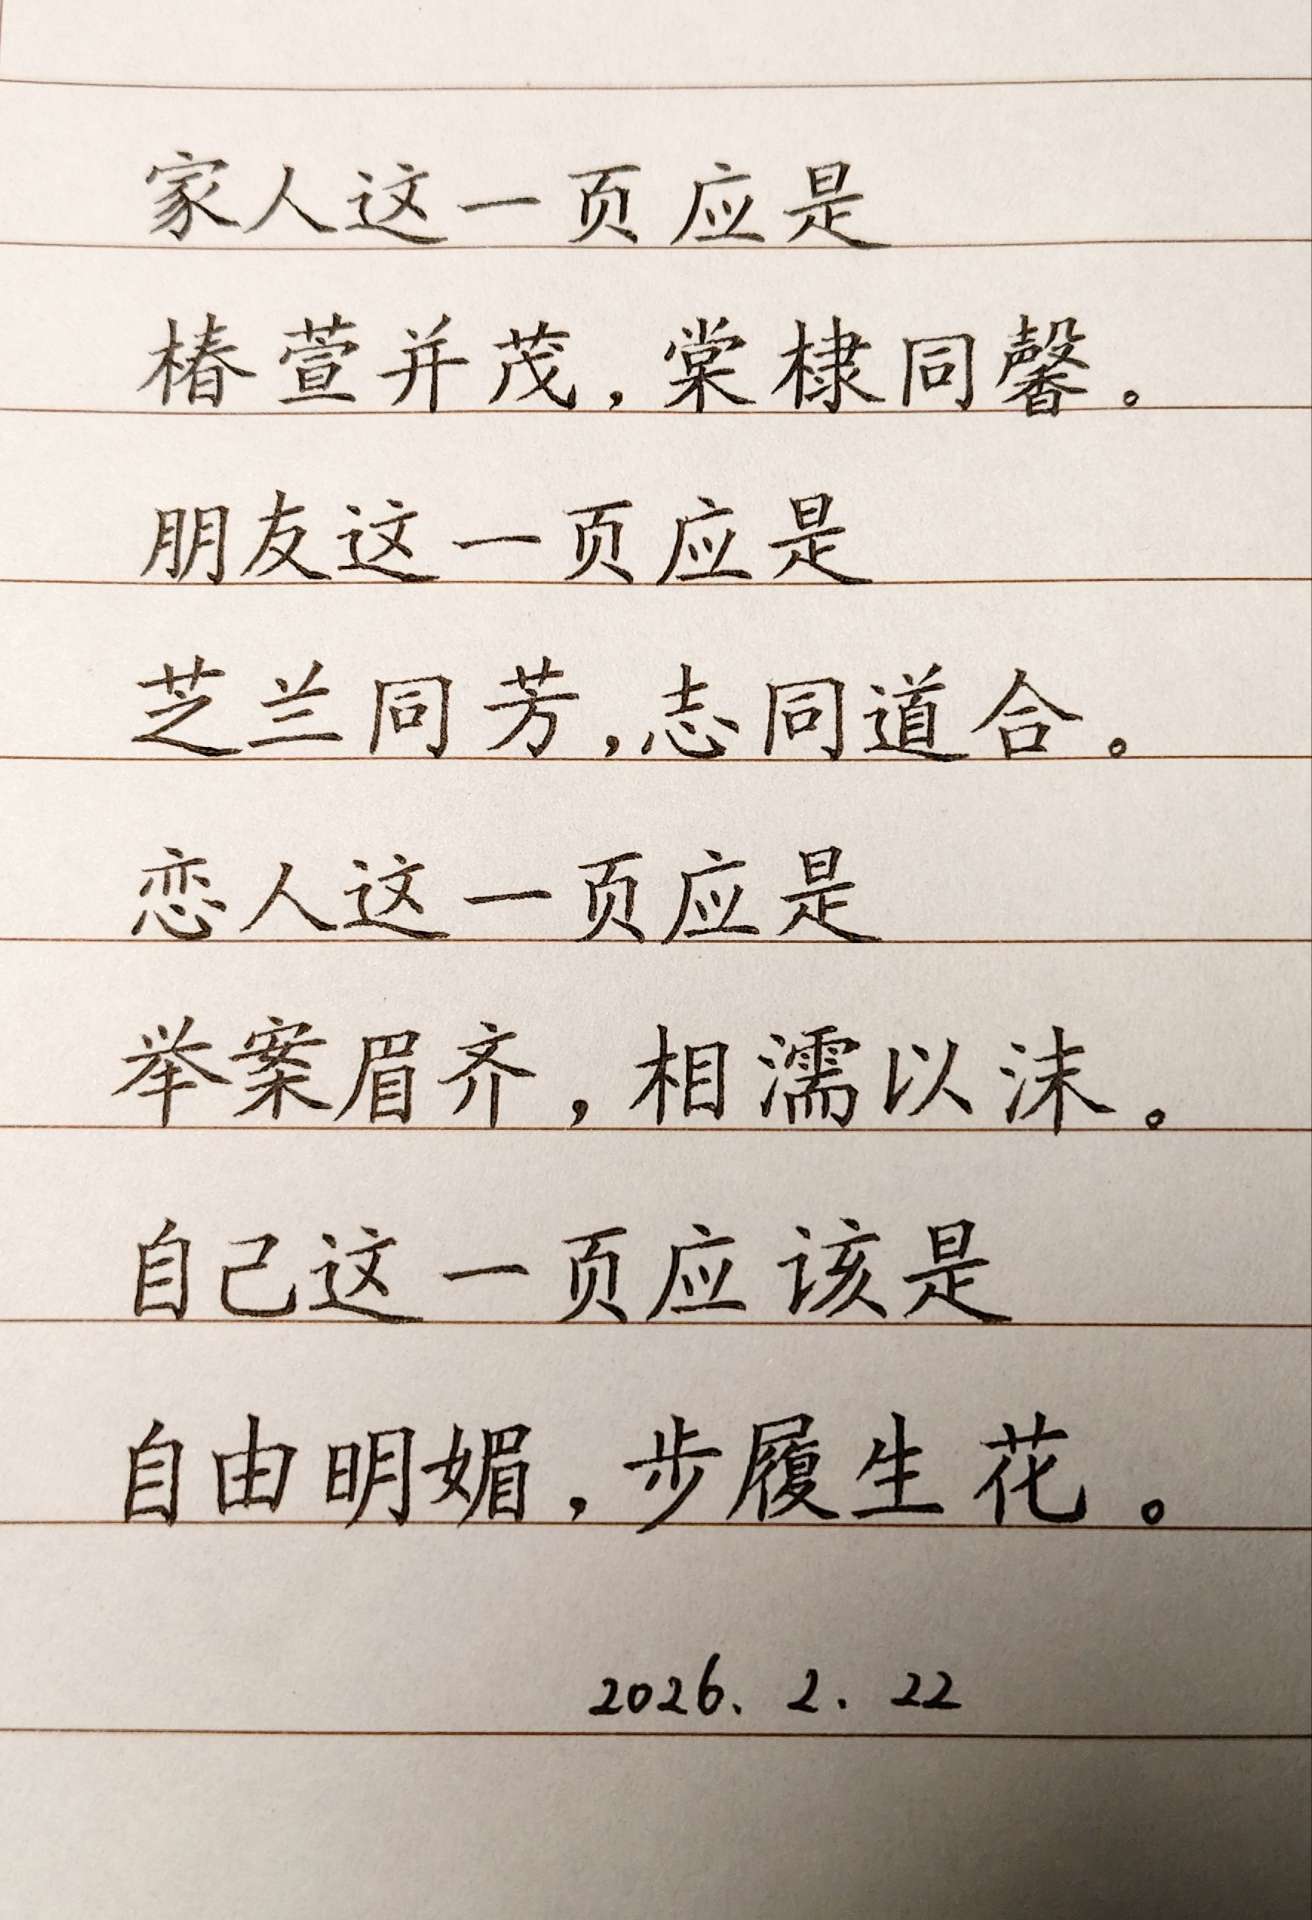 家人这一页应是
椿萱并茂,棠棣同馨。
朋友这一页应是
芝兰同芳,志同道合。
恋人这一页应是
举案眉齐,相濡以沫。
自己这一页应该是
自由明媚,步履生花。
2026. 2. 22